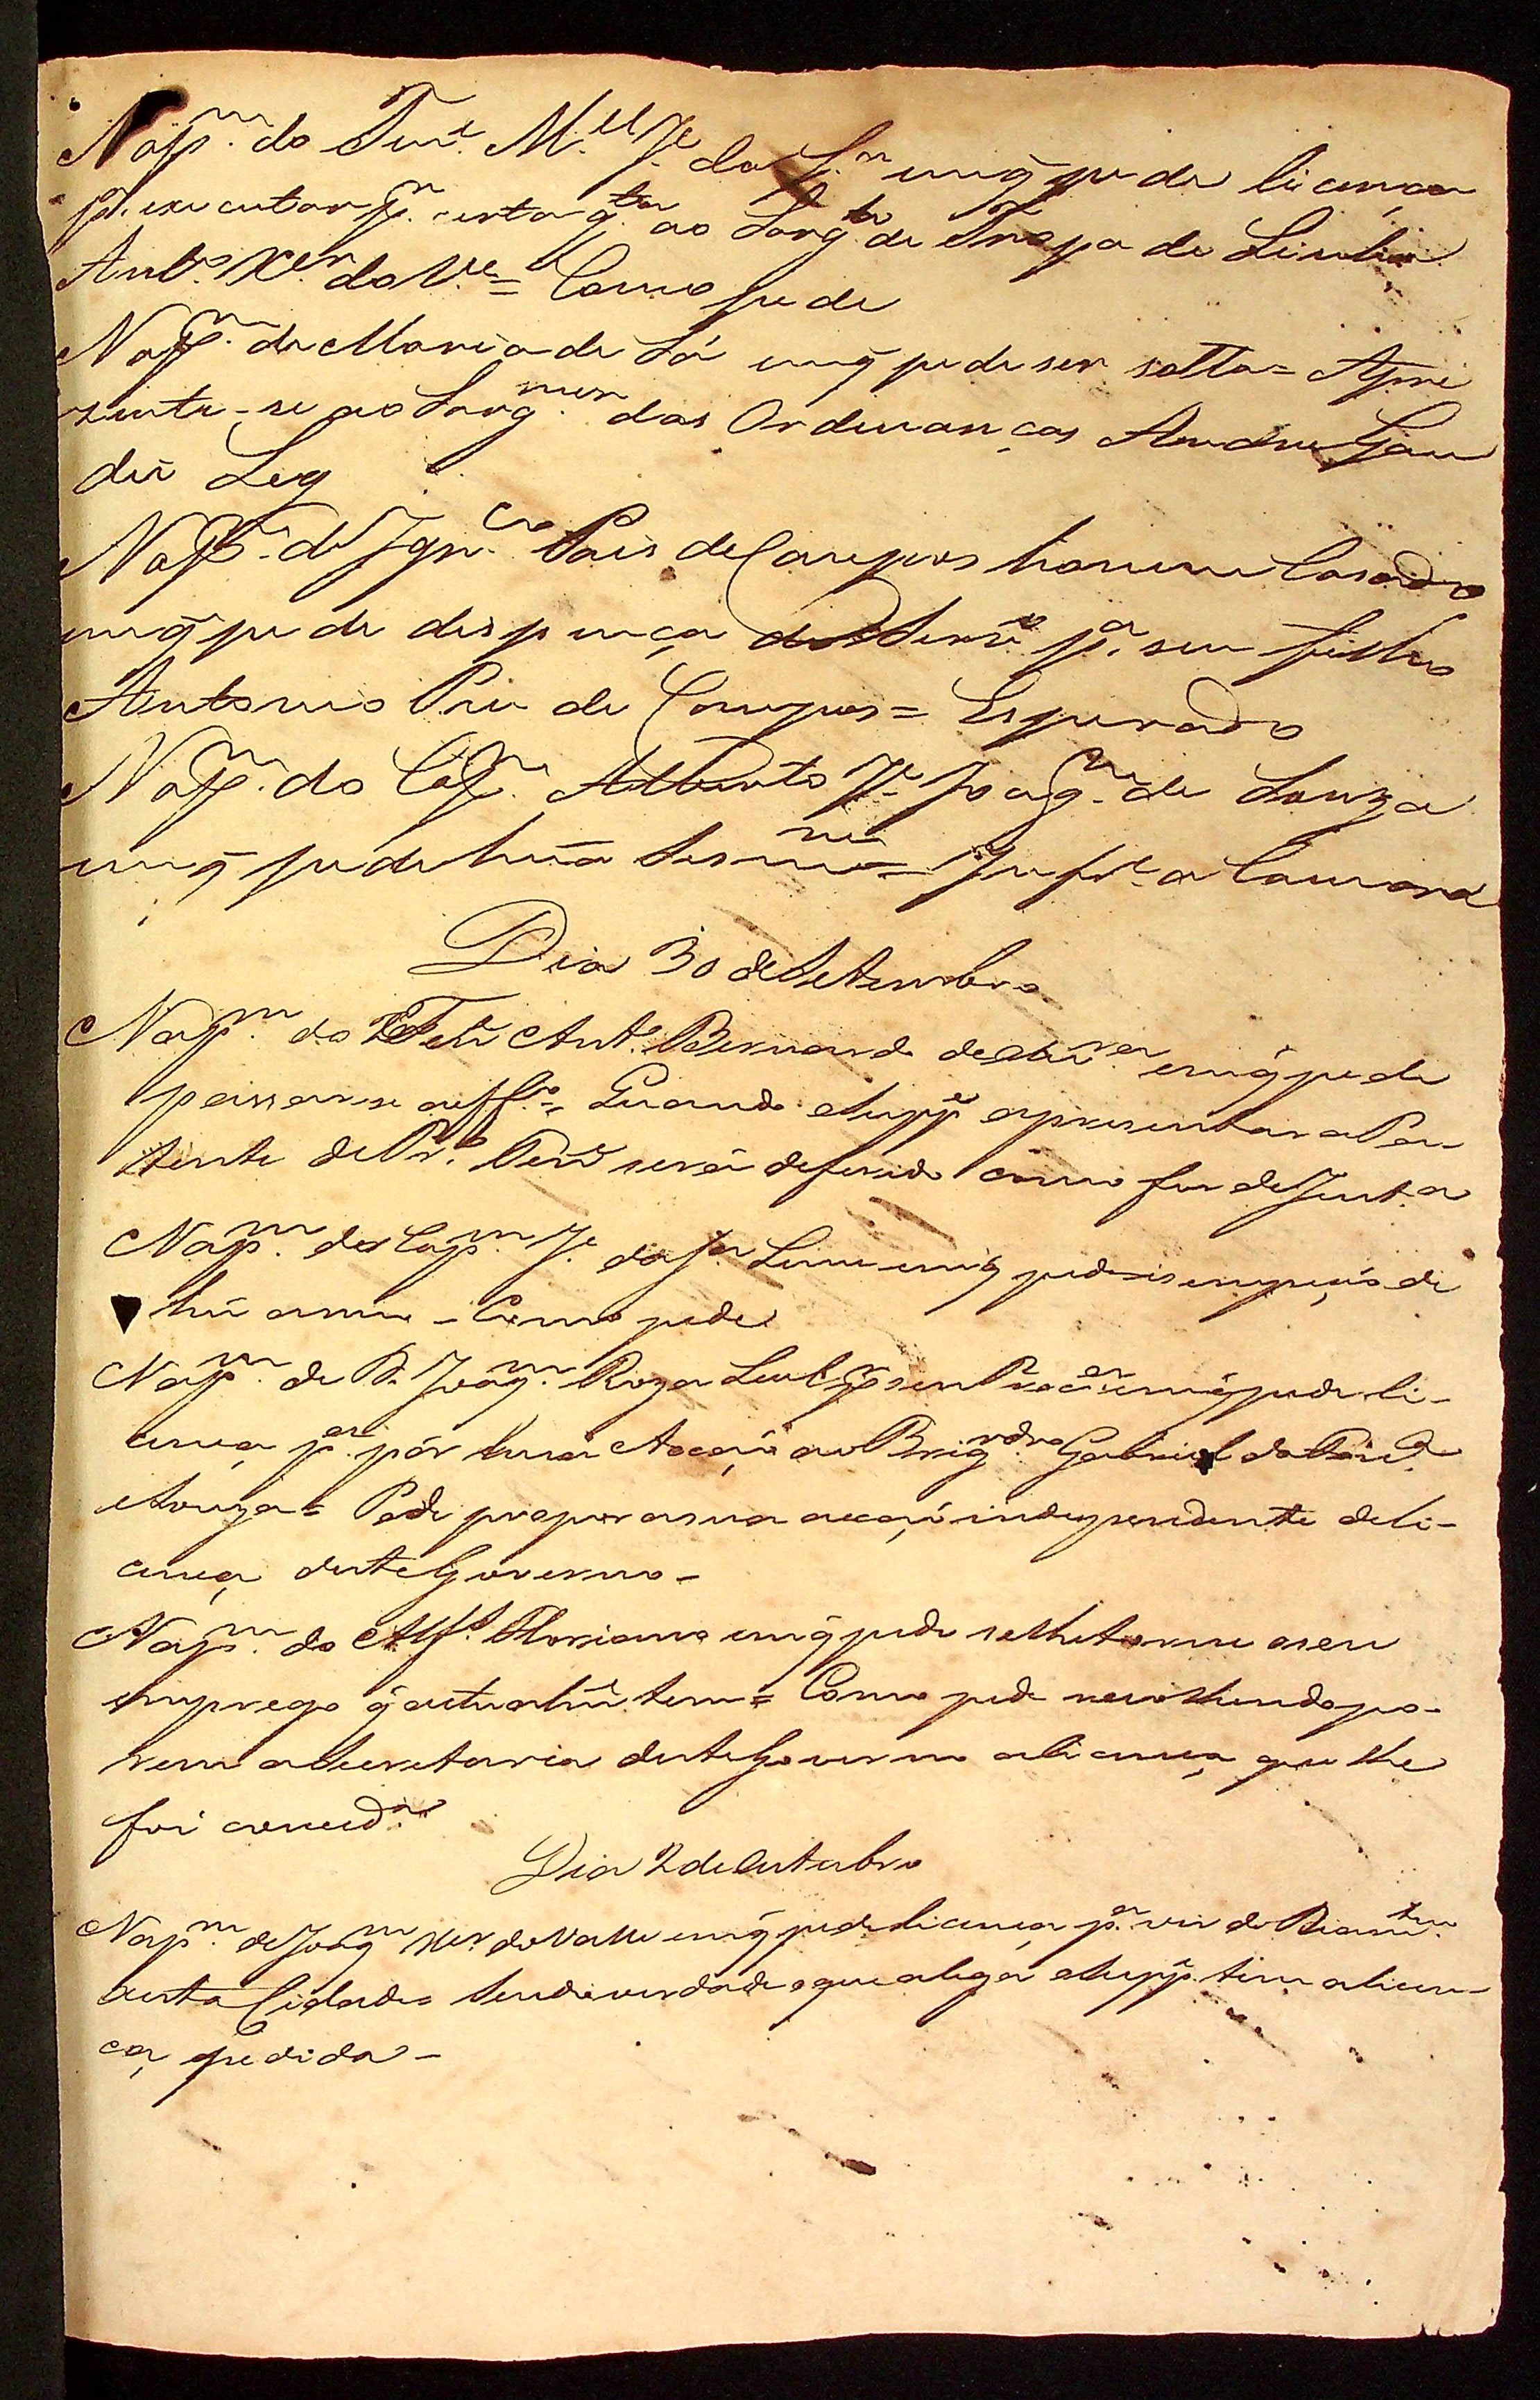 Na p.m do Ten.e M.el J.e da S.a em q̃ pede licença
p.a executar p.r certa q.ta ao Sarg.to de Tropa de Linha
Ant.o X.er do V.e = Como pede
Na p.m de Maria de Sá em q̃ pede ser solta = Apre
zente-se ao Sarg. mor das Ordenanças Andre Gau
die Ley
Na p.m de Ign.cio Pais de Campos homem Cazado
em q̃ pede dispença do Serv.o p.a seu filho
Antonio Piu de Campos = Esperado
Na p.m do Cap.m Alberto J.e Joaq.m de Souza
em q̃ pede huã Sesm.ria = Inf.e a Camara
Dia 30 de Setembro
Na p.m do Ten.e Ant.o Bernardo de em q̃ pede
passarse a = Quando o Supp.e apresentar a Pa-
tente de será deferido como for de Justa
Na p.m do Cap.m J.e da S.a Leme em q̃ pede isempção de
hũ anno - Como pede
Na p.m de D. Joaq.m Roza Leal p.r seu Procu.or em q̃ pede li-
cença p.a pôr huã Accaõ ao Brig.dro Gabriel da
e Souza = Póde propor a sua accaõ independente de li-
cença deste Governo -
Na p.m do Alf.s Floriano em q̃ pede se lhe torne o seu
emprego q̃ actualm.e tem = Como pede recolhendo po-
rem a Secretaria deste Governo a licença que lhe
foi conced.a
Dia 2 de Outubro
Na p.m de Joaq.m X.er do Valle em q̃ pede licença p.a vir de
a esta Cidade = Sendo verdade o que alega o Supp.e tem a licen-
ça pedida -